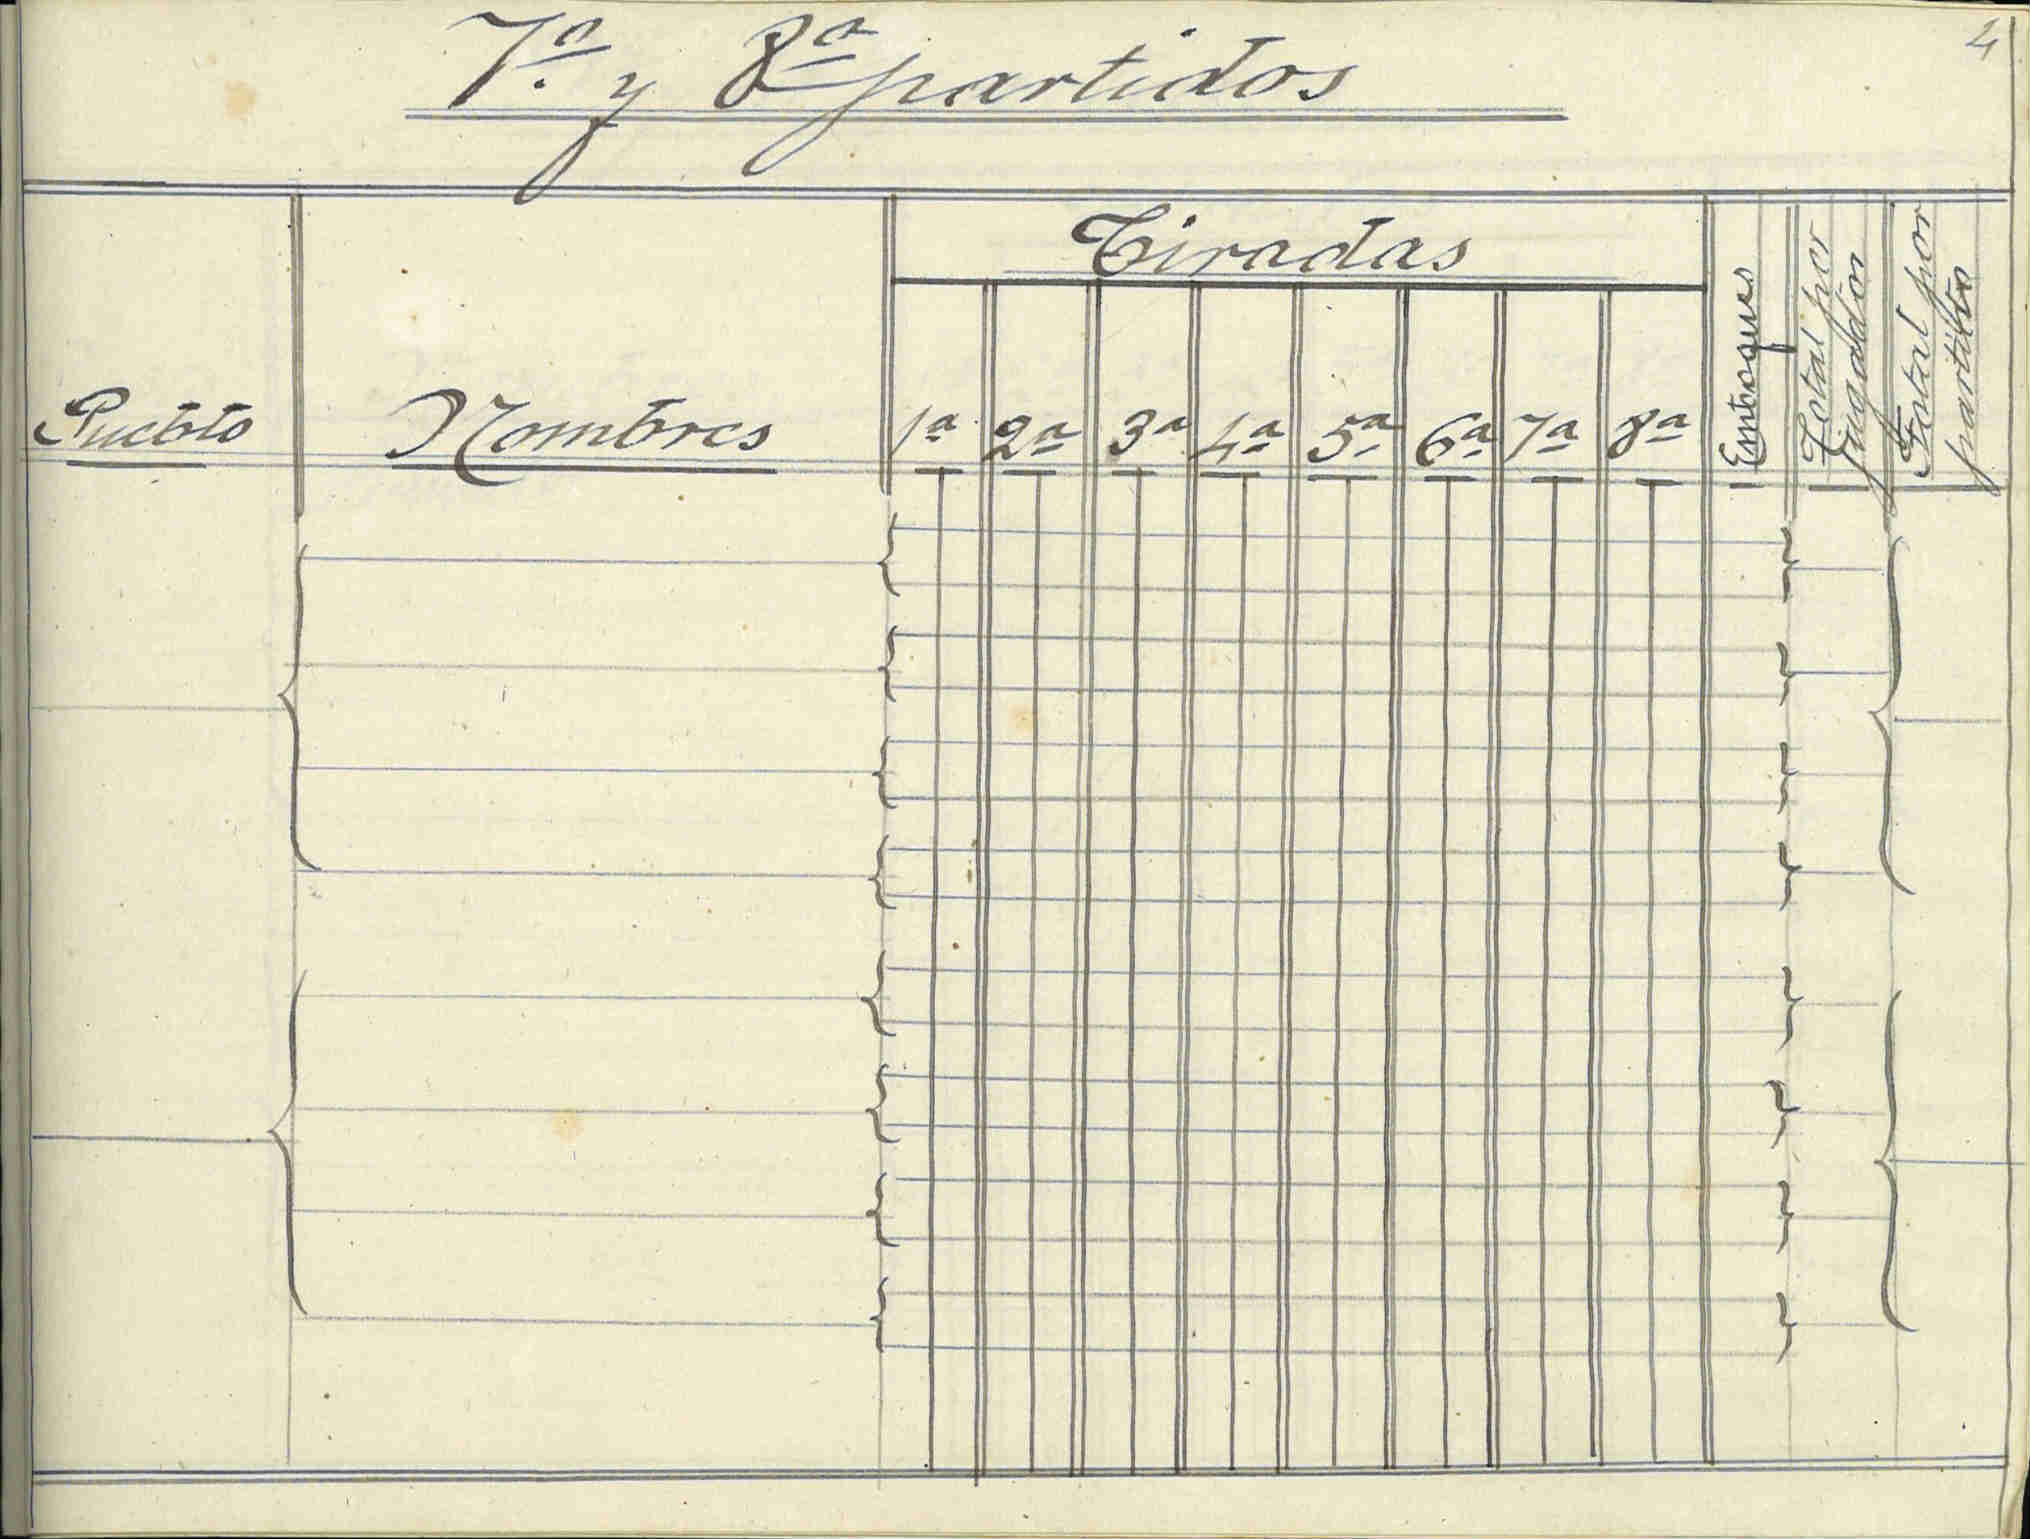 4
7ª y 8ª partidos
Tiradas
Pueblo Nombres 1ª 2ª 3ª 4ª 5ª 6ª 7ª 8ª
Emboques
Total por
jugador
Total por
partido